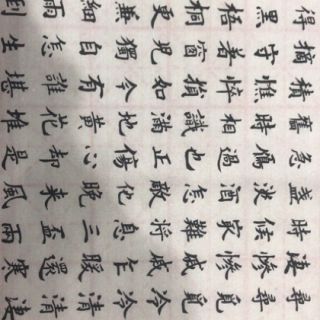 尋尋覓覓冷冷清清淒
淒慘慘戚戚乍暖還寒
時候最難將息三盃兩
盞淡酒怎敵他晚來風
急雁過也正傷心卻是
舊時相識滿地黃花堆
積憔悴損如今有誰堪
摘守着窗兒獨自怎生
得黑梧桐更兼細雨到